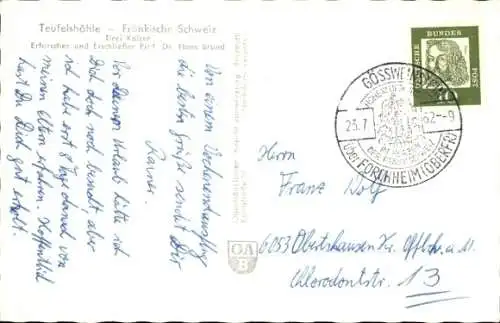 Teufelshöhle – Fränkische Schweiz
Drei Kaiser
Erforscher und Erschließer Prof. Dr. Hans Brand
Von einem Wochenendausflug
die besten Grüße sendet Dir
Rainer.
Vor deinem Urlaub hätte ich
Dich doch noch besucht aber
ich habe erst 8 Tage danach von
meinen Eltern erfahren. Hoffentlich
hast Du Dich gut erholt.
DEUTSCHE BUNDESPOST
10
GÖSSWEINSTEIN
23.7.62-9
über FORCHHEIM (OBERFR)
Herrn
Franz Wolf
6053 Obertshausen Kr. Offb. a. M.
Chlorodontstr. 13